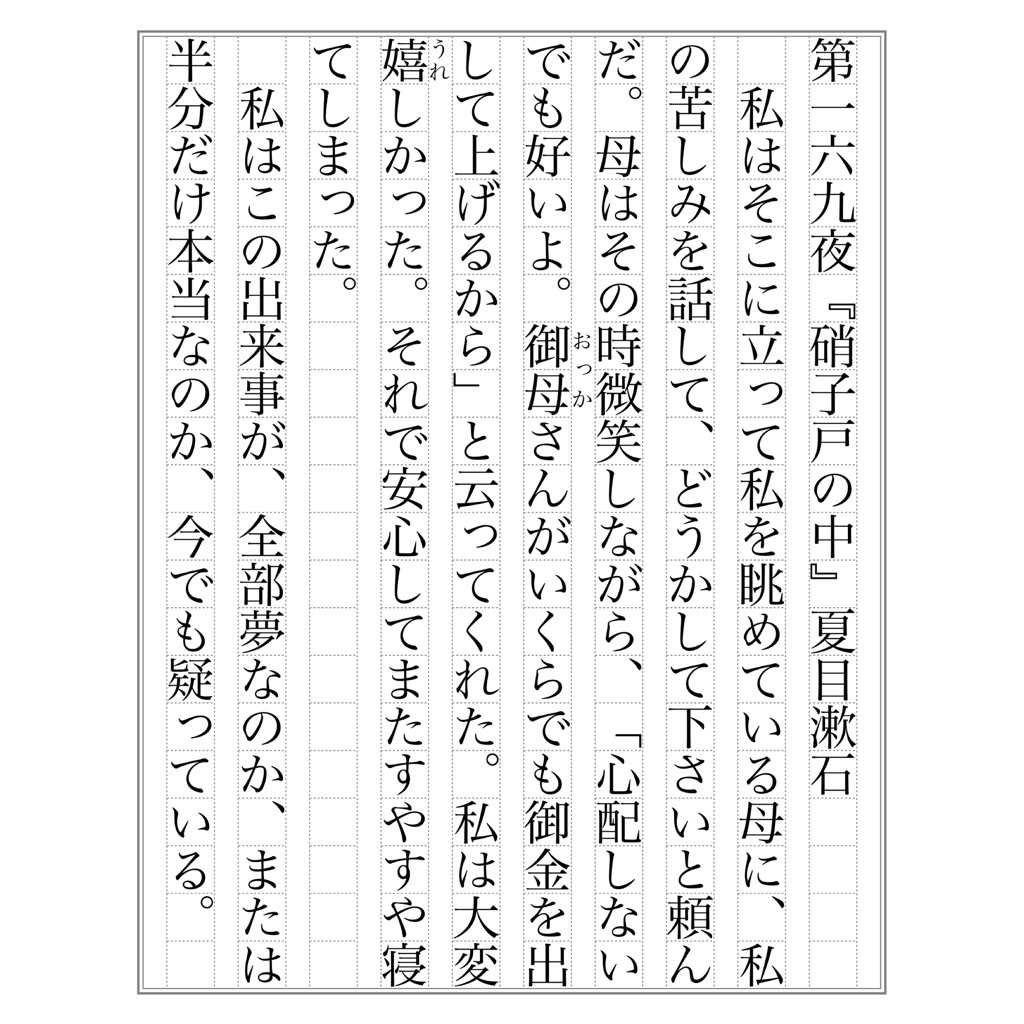 第一六九夜『硝子戸の中』夏目漱石
　私はそこに立って私を眺めている母に、私
の苦しみを話して、どうかして下さいと頼ん
だ。母はその時微笑しながら、「心配しない
でも好いよ。御母さんがいくらでも御金を出
おっか
して上げるから」と云ってくれた。私は大変
嬉しかった。それで安心してまたすやすや寝
うれ
てしまった。
　私はこの出来事が、全部夢なのか、または
半分だけ本当なのか、今でも疑っている。